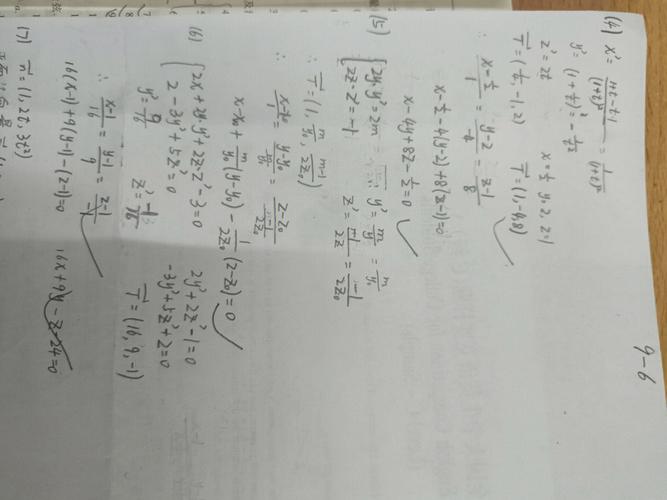 9-6
(4) x' = \frac{1+t-t·1}{(1+t)^2} = \frac{1}{(1+t)^2}
y' = (1+\frac{1}{t})' = -\frac{1}{t^2}
z' = 2t x=\frac{1}{2} y=2, z=1
\vec{T} = (\frac{1}{4}, -1, 2) \vec{T} = (1, -4, 8)
∴ \frac{x-\frac{1}{2}}{1} = \frac{y-2}{-4} = \frac{z-1}{8}
x-\frac{1}{2}-4(y-2)+8(z-1)=0
x-4y+8z-\frac{1}{2}=0
(5) { 2y·y'=2m y'=\frac{m}{y}=\frac{m}{y_0}
2z·z'=-1 z'=\frac{-1}{2z}=\frac{-1}{2z_0}
∴ \vec{T} = (1, \frac{m}{y_0}, \frac{-1}{2z_0})
∴ \frac{x-x_0}{1} = \frac{y-y_0}{\frac{m}{y_0}} = \frac{z-z_0}{\frac{-1}{2z_0}}
x-x_0+\frac{m}{y_0}(y-y_0)-\frac{1}{2z_0}(z-z_0)=0
(6) { 2x+2y·y'+2z·z'-3=0 2y'+2z'-1=0
2-3y'+5z'=0 -3y'+5z'+2=0
y'=\frac{9}{16} z'=-\frac{1}{16} \vec{T}=(16, 9, -1)
∴ \frac{x-1}{16} = \frac{y-1}{9} = \frac{z-1}{-1}
16(x-1)+9(y-1)-(z-1)=0 16x+9y-z-24=0
(7) \vec{n}=(1, 2t, 3t^2)